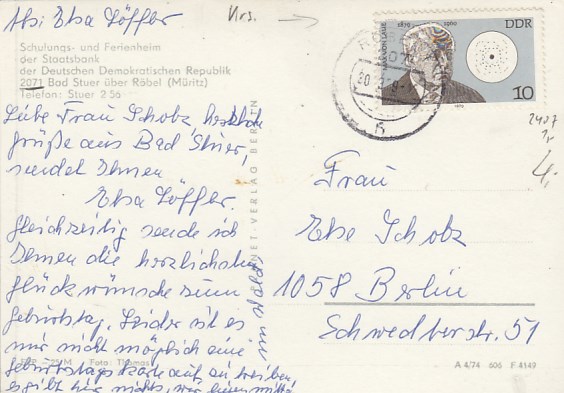 Abs: Elsa Löffler
Krs.
Schulungs- und Ferienheim
der Staatsbank
der Deutschen Demokratischen Republik
2071 Bad Stuer über Röbel (Müritz)
Telefon: Stuer 2 56
Liebe Frau Scholz, herzliche
grüße aus Bad Stuer,
sendet Ihnen
Elsa Löffler.
Gleichzeitig sende ich
Ihnen die herzlichsten
glückwünsche zum
geburtstag. Leider ist es
mir nicht möglich eine
geburtstagskarte auf zu treiben,
es gibt hier nichts, wir
im Wald
VERLAG BERLIN
Foto: Thomas
1879 1960
DDR
10
20
2407
4,-
Frau
Else Scholz
1058 Berlin
Schwedterstr. 51
A 4/74 606 F 4149